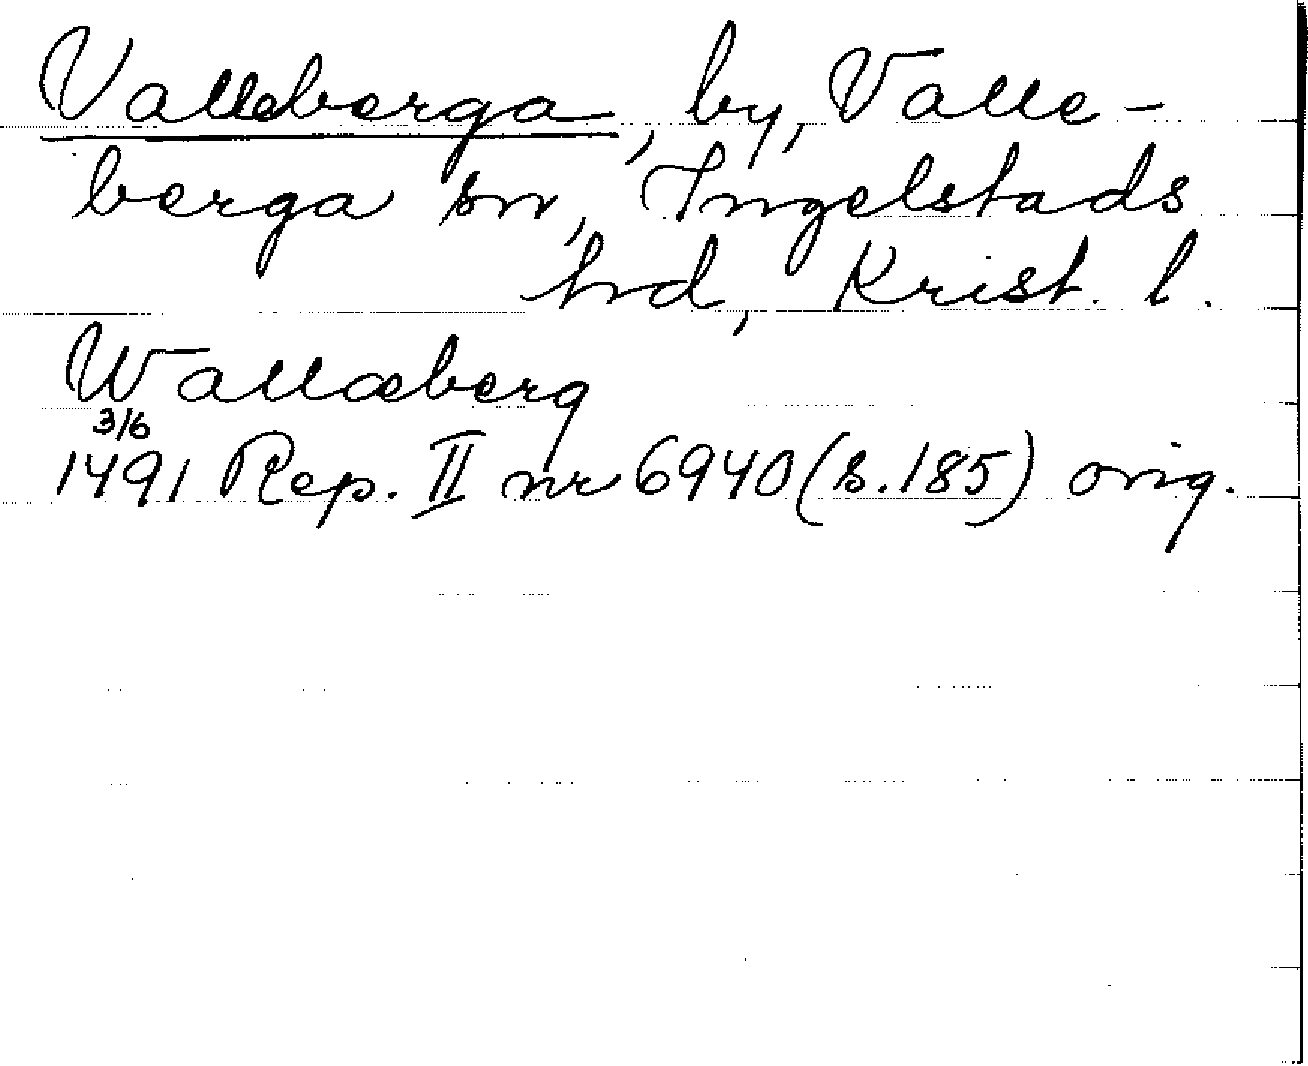 Valleberga, by, Valle-
berga sn, Ingelstads
hd, Krist. l.
Wallæberg
3/6
1491 Rep. II nr 6940 (s. 185) orig.